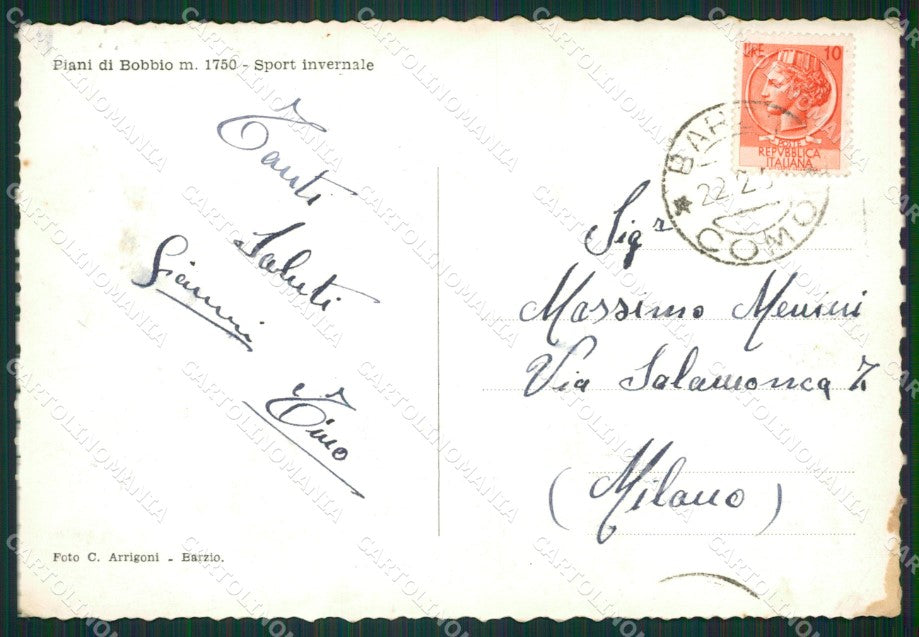 Piani di Bobbio m. 1750 - Sport invernale
Tanti
Saluti
Gianni
Tino
Foto C. Arrigoni - Barzio.
LIRE 10
POSTE
REPVBBLICA
ITALIANA
BAR
22.2.5
COMO
Sigr
Massimo Menini
Via Salamonca 7
(Milano)
CARTOLINOMANIA